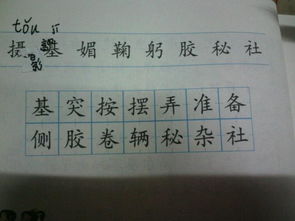 tǒu
摄 基 媚 鞠 躬 胶 秘 社
基 突 按 摆 弄 准 备
侧 胶 卷 辆 秘 杂 社